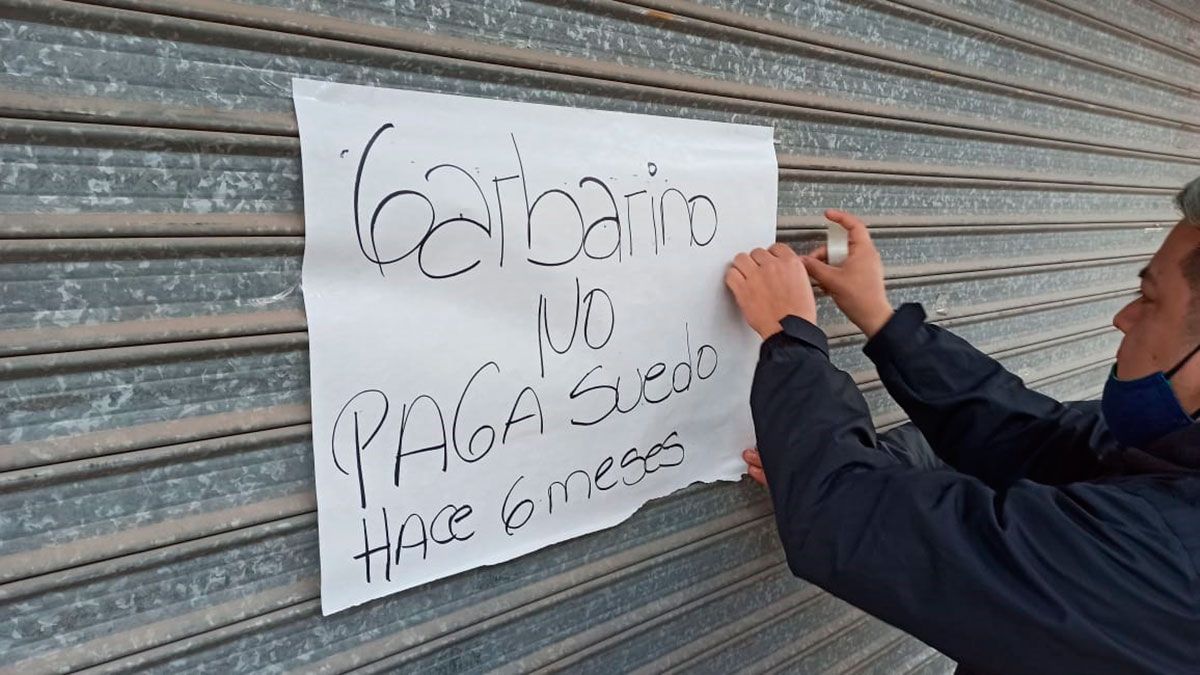 Garbarino
NO
PAGA SUEdo
HACE 6 meses